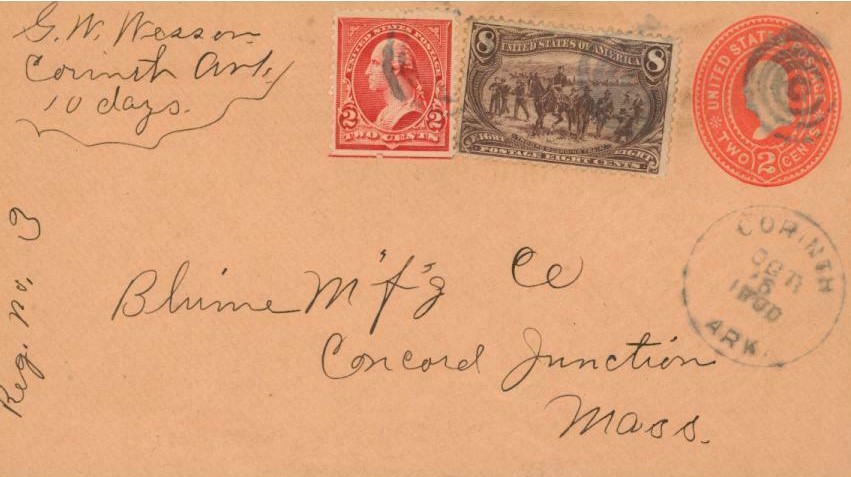 G. W. Wesson
Corinth Ark.
10 days.
UNITED STATES POSTAGE
2 2
TWO CENTS
8 8
UNITED STATES OF AMERICA
EIGHT
POSTAGE EIGHT CENTS
UNITED STATES
TWO 2 CENTS
CORINTH
1900
ARK.
Reg. no. 3
Blume M"f"g Co
Concord Junction
Mass.